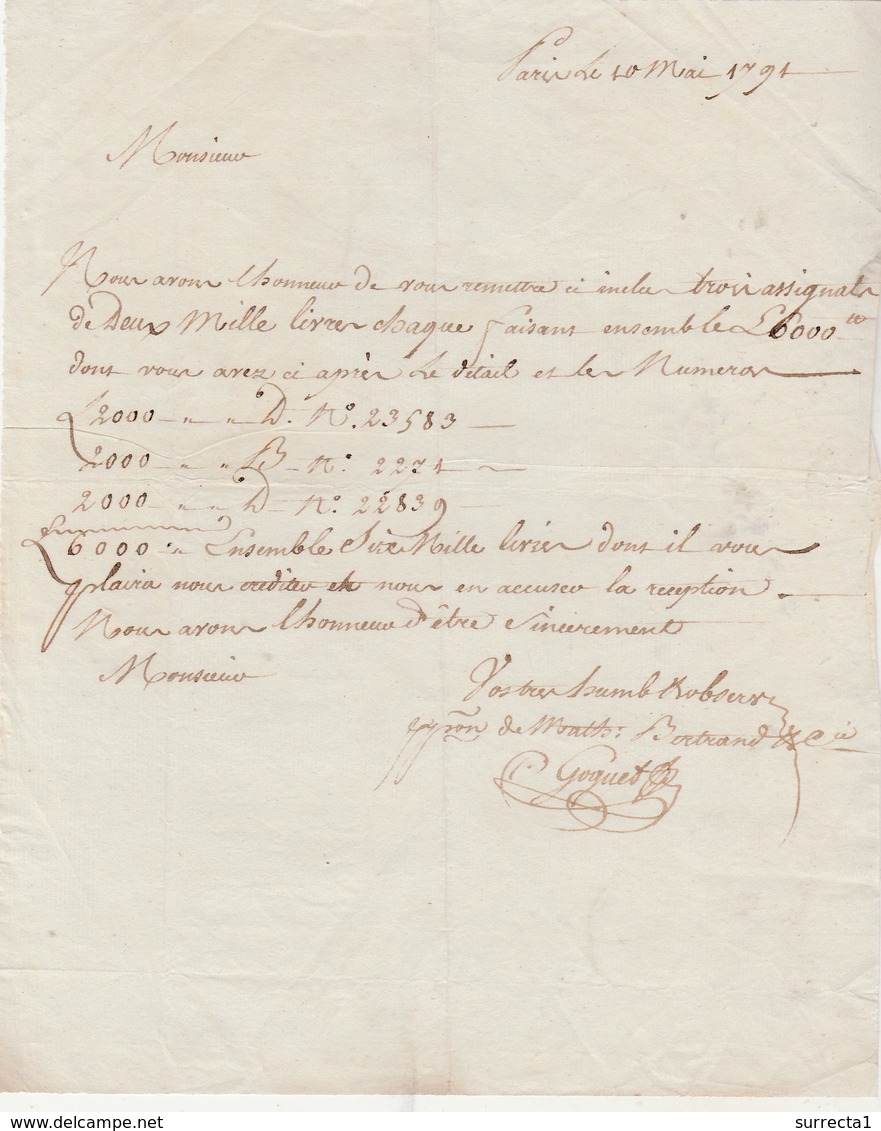 Paris Le 10 Mai 1791
Monsieur
Nous avons lhonneur de vous remettre ci inclus trois assignats
de Deux Mille livres chaque faisant ensemble £6000 tt
dont vous avez ci après Le détail et les Numeros
£ 2000 " " D. N°. 23583
2000 " " B N°. 2271
2000 " " D N°. 22839
£ 6000 " Ensemble Six Mille livres dont il vous
plaira nous crediter et nous en accuser la reception
Nous avons lhonneur d'être Sincerement
Monsieur
Vos tres humb & ob serv
pp.on de Math: Bertrand & Cie
Goguet
delcampe.net
surrecta1